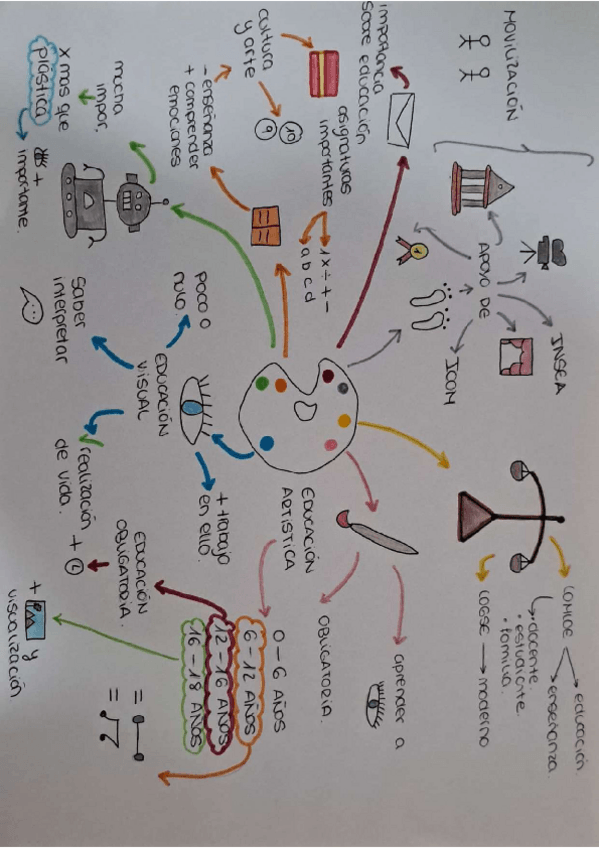 MOVILIZACIÓN
APOYO DE
INSEA
ICOM
LOMLOE
educación
enseñanza
• docente.
• estudiante
• familia.
LOGSE → moderno
importancia
sobre educación
asignaturas
importantes
1 x ÷ + -
a b c d
cultura
y arte
9
10
- enseñanza
+ comprender
emociones
EDUCACIÓN
ARTÍSTICA
aprender a
OBLIGATORIA.
0 - 6 AÑOS
6 - 12 AÑOS
12 - 16 AÑOS
16 - 18 AÑOS
=
=
EDUCACIÓN
OBLIGATORIA.
+
+
y
visualización
mucha
impor,
x mas que
plástica
+
importante.
EDUCACIÓN
VISUAL
poco o
nulo.
+ trabajo
en ello.
Saber
interpretar
realización
de vida.